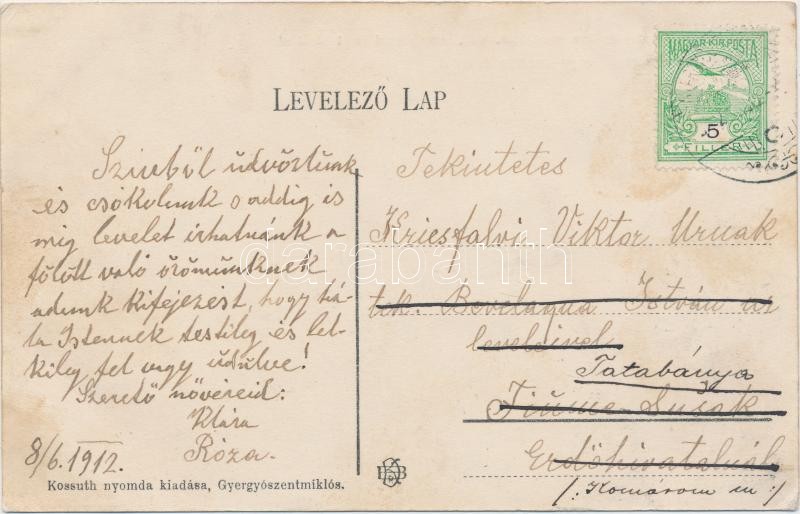 MAGYAR KIR. POSTA
5
FILLÉR
LEVELEZŐ LAP
Szivből üdvözlünk
és csókolunk s addig is
mig levelet irhatnánk a
fölött való örömünknek
adunk kifejezést, hogy há-
la Istennek testileg és lel-
kileg fel vagy üdülve!
Szerető nővéreid:
Klára
Róza.
8/6. 1912.
Kossuth nyomda kiadása, Gyergyószentmiklós.
Tekintetes
Kriesfalvi Viktor Urnak
tek. Bevelaqua István úr
leveleivel
Tatabánya
Fiume-Susak
Erdőhivatalnál
/: Komárom m :/
D B
darabanth